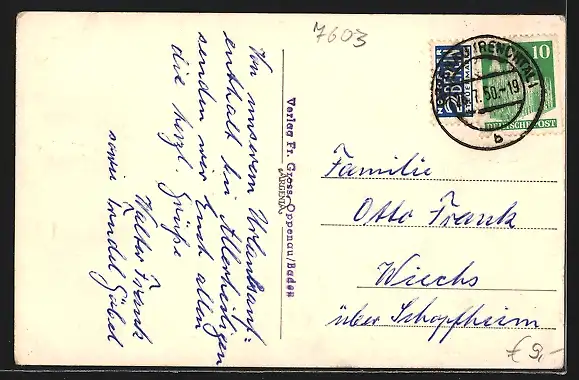 7603
Von unserem Urlaubauf-
enthalt bei Allerheiligen
senden wir Euch allen
die herzl. Grüße
Walter Frank
sowie Trudel Göbel
Verlag Fr. Gross-Oppenau/Baden
"ARGENTA"
2 BERLIN
NOTOPFER
STEUERMARKE
10
DEUTSCHE POST
7.50.-19
b
Familie
Otto Frank
Wiechs
über Schopfheim
€ 9,-